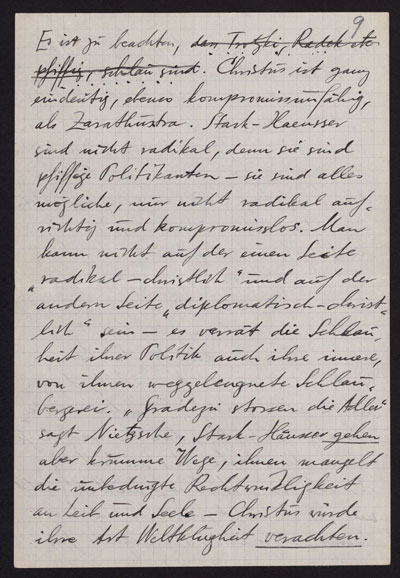 9
Es ist zu beachten, dass Trotzki, Radek etc.
pfiffig, schlau sind. Christus ist ganz
eindeutig, ebenso kompromissunfähig,
als Zarathustra. Stark-Haeusser
sind nicht radikal, denn sie sind
pfiffige Politikanten – sie sind alles
mögliche, nur nicht radikal auf-
richtig und kompromisslos. Man
kann nicht auf der einen Seite
„radikal-christlich" und auf der
andern Seite „diplomatisch-christ-
lich" sein – es verrät die Schlau-
heit ihrer Politik auch ihre innere,
von ihnen weggeleugnete Schlau-
bergerei. „Gradezu stossen die Adler"
sagt Nietzsche, Stark-Häusser gehen
aber krumme Wege, ihnen mangelt
die unbedingte Rechtwinkligkeit
an Leib und Seele – Christus würde
ihre Art Weltklugheit verachten.